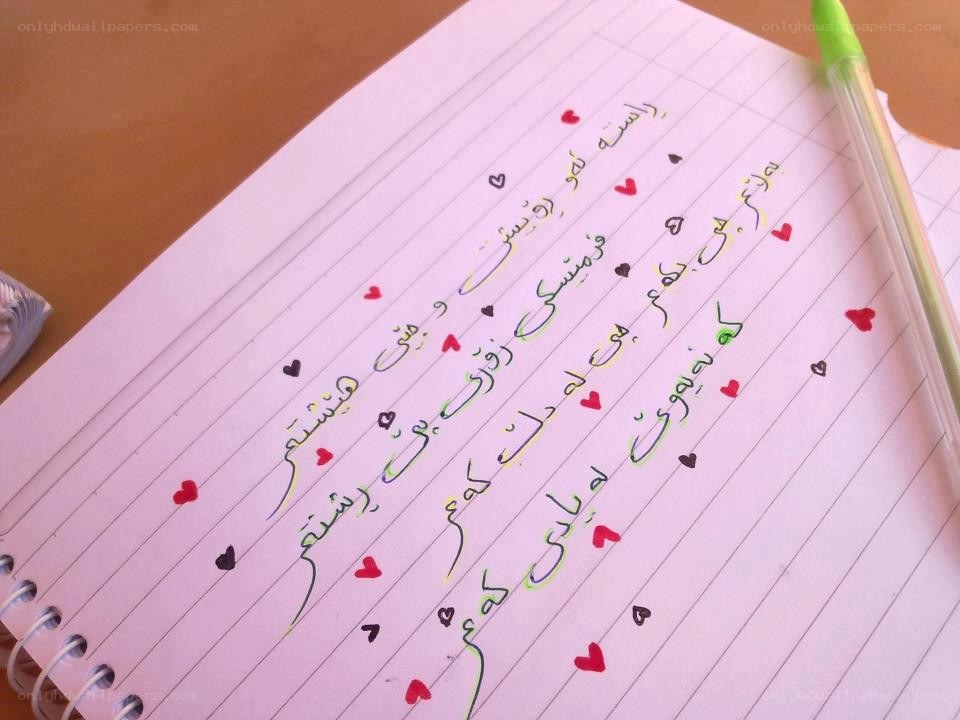 onlyhdwallpapers.com
onlyhdwallpapers.com
ڕاستە ئەو ڕۆیشت و جێی هێشتم
فرمێسکی زۆری پێ ڕشتم
بەڵام چی بکەم چی لە دڵ کەم
کە نەیەوێ لە یادی کەم
onlyhdwallpapers.com
onlyhdwallpapers.com